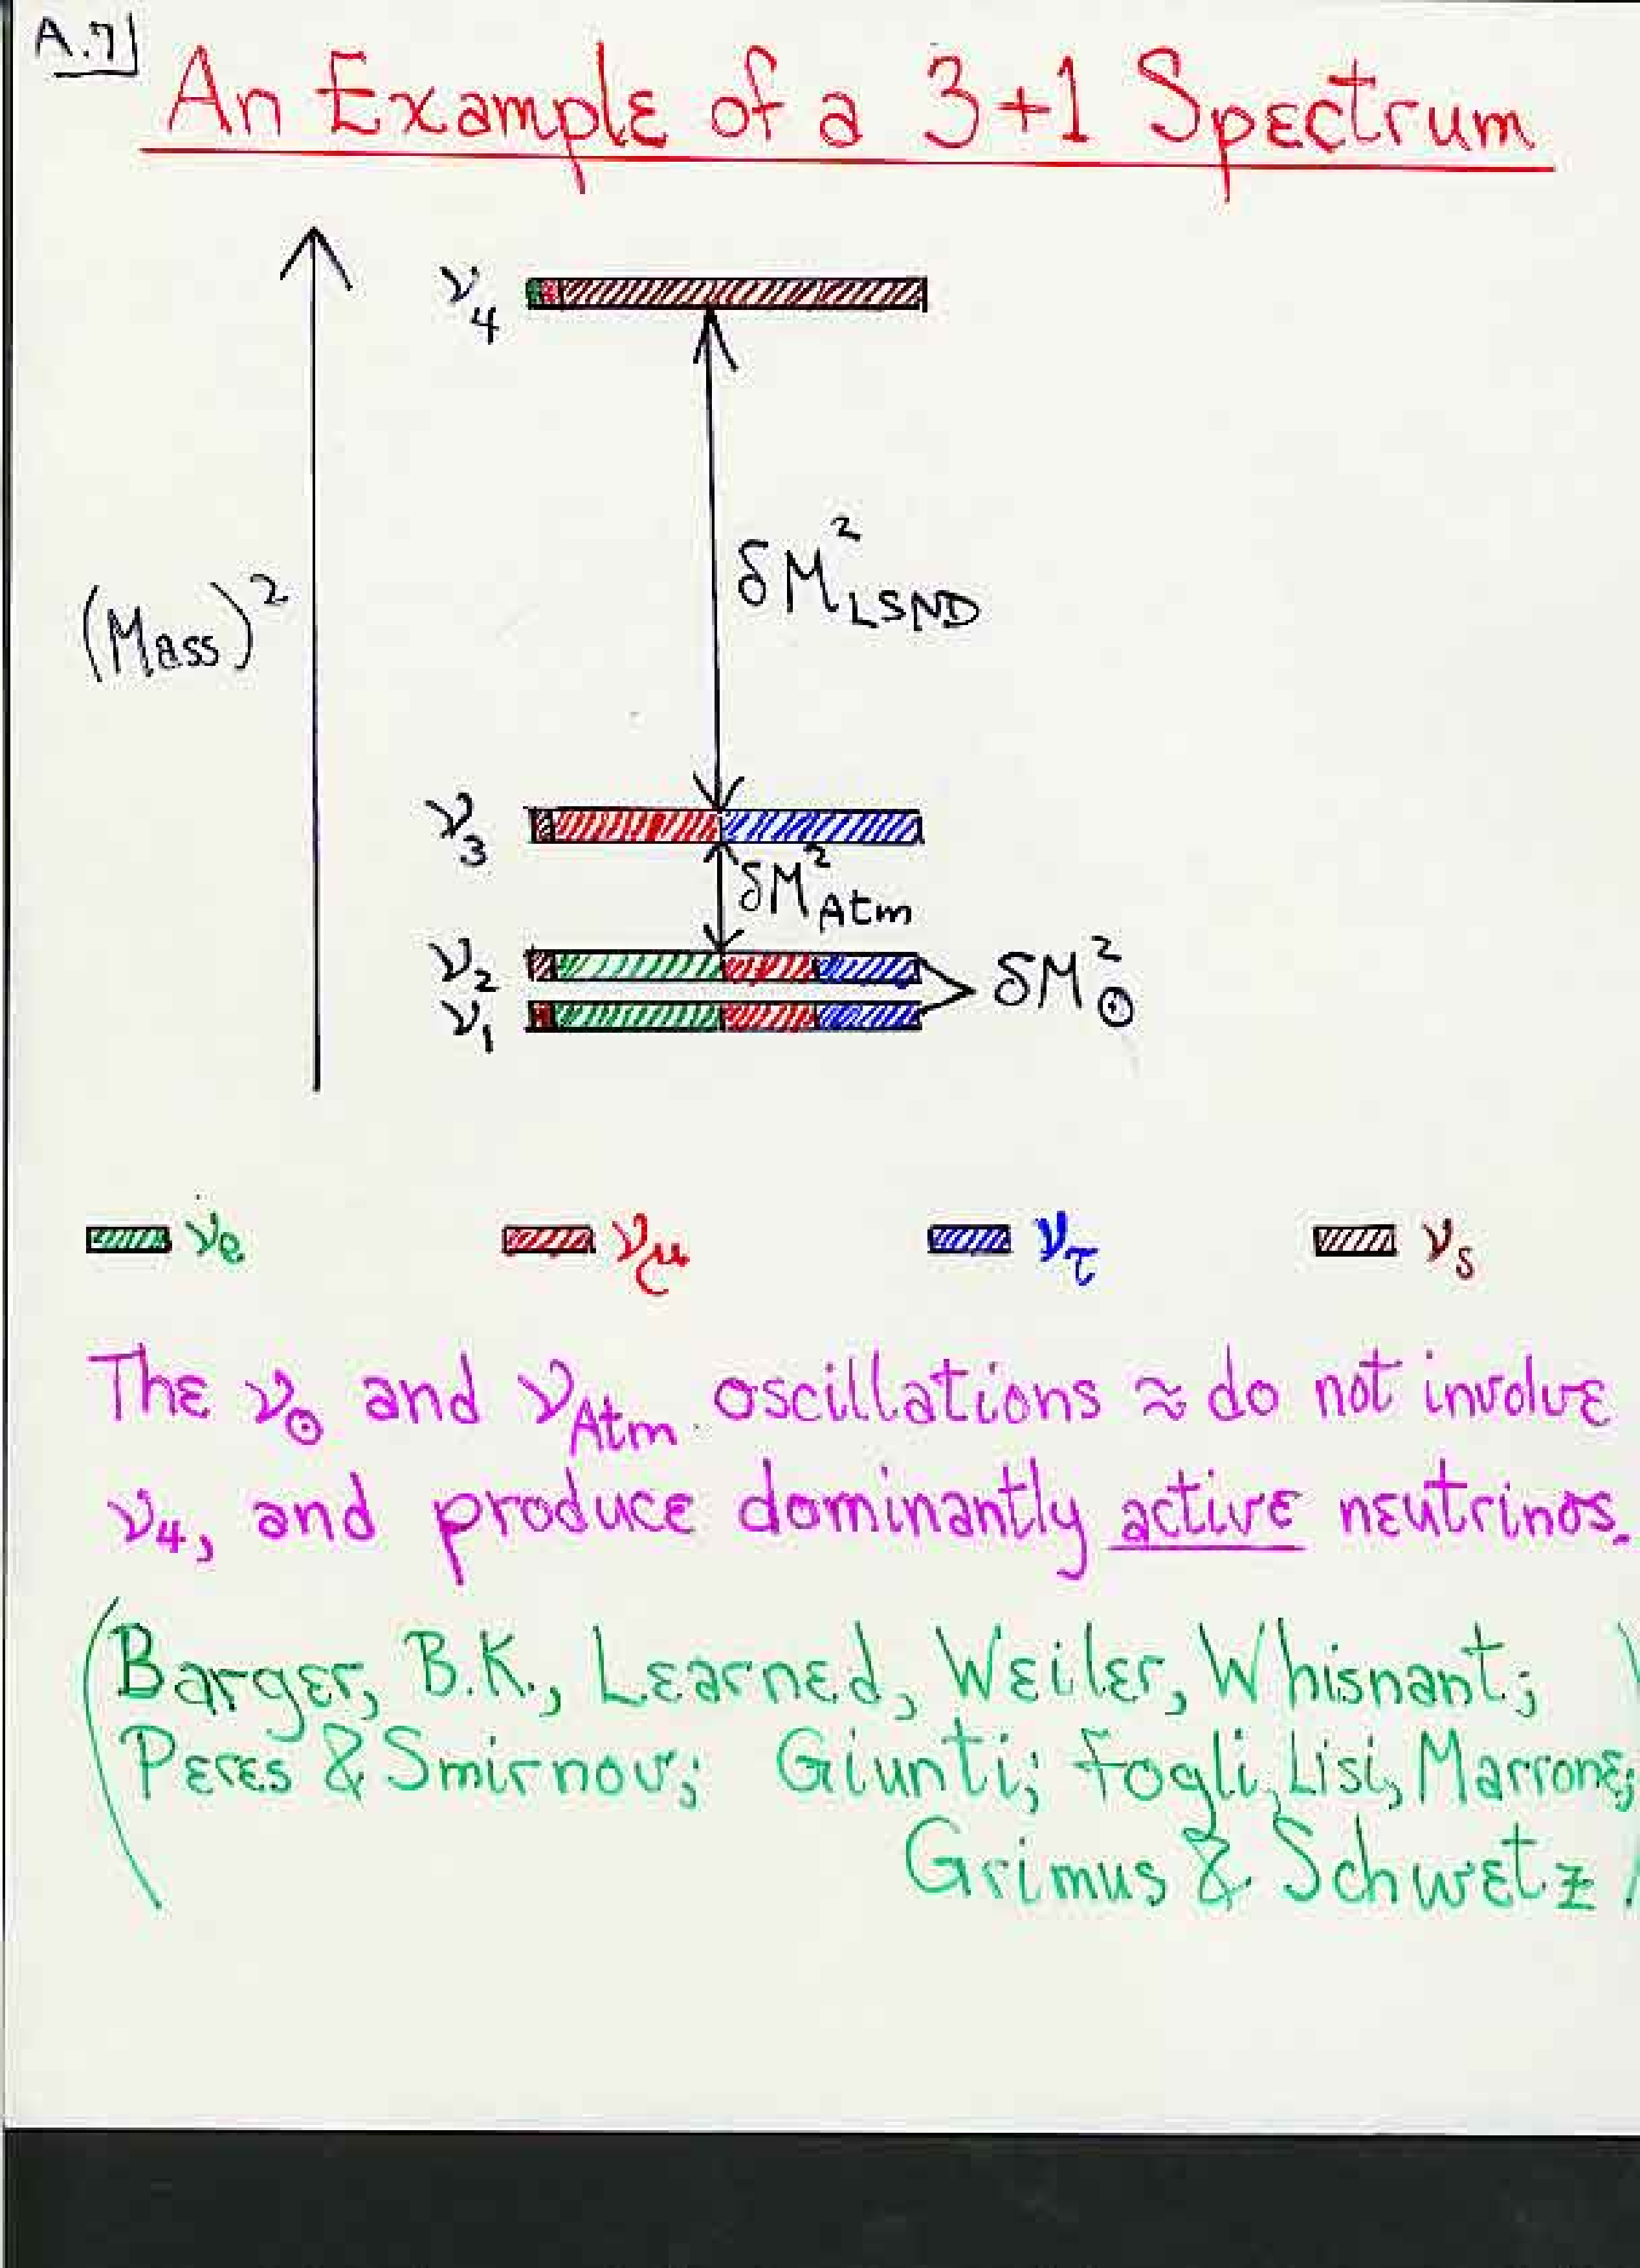 A.7
An Example of a 3+1 Spectrum
ν₄
δM²_LSND
(Mass)²
ν₃
δM²_Atm
ν₂
ν₁
δM²_⊙
νe
νμ
ντ
νs
The ν⊙ and ν_Atm oscillations ≈ do not involve
ν₄, and produce dominantly active neutrinos.
(Barger, B.K., Learned, Weiler, Whisnant;
Peres & Smirnov; Giunti; Fogli, Lisi, Marrone;
Grimus & Schwetz)